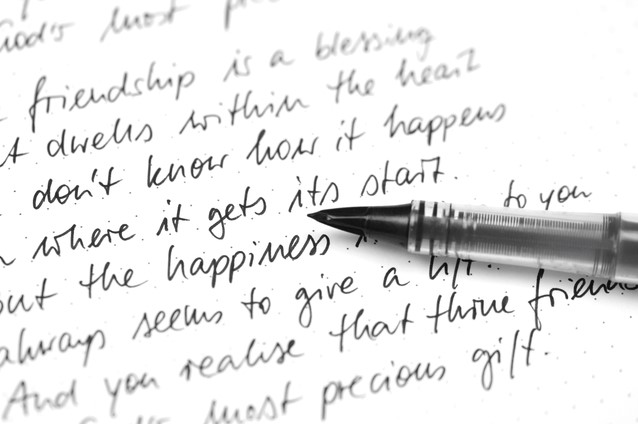 God's most
friendship is a blessing
dwells within the heart
don't know how it happens
where it gets its start.
the happiness to you
always seems to give a lift.
And you realise that thine friend
most precious gift.